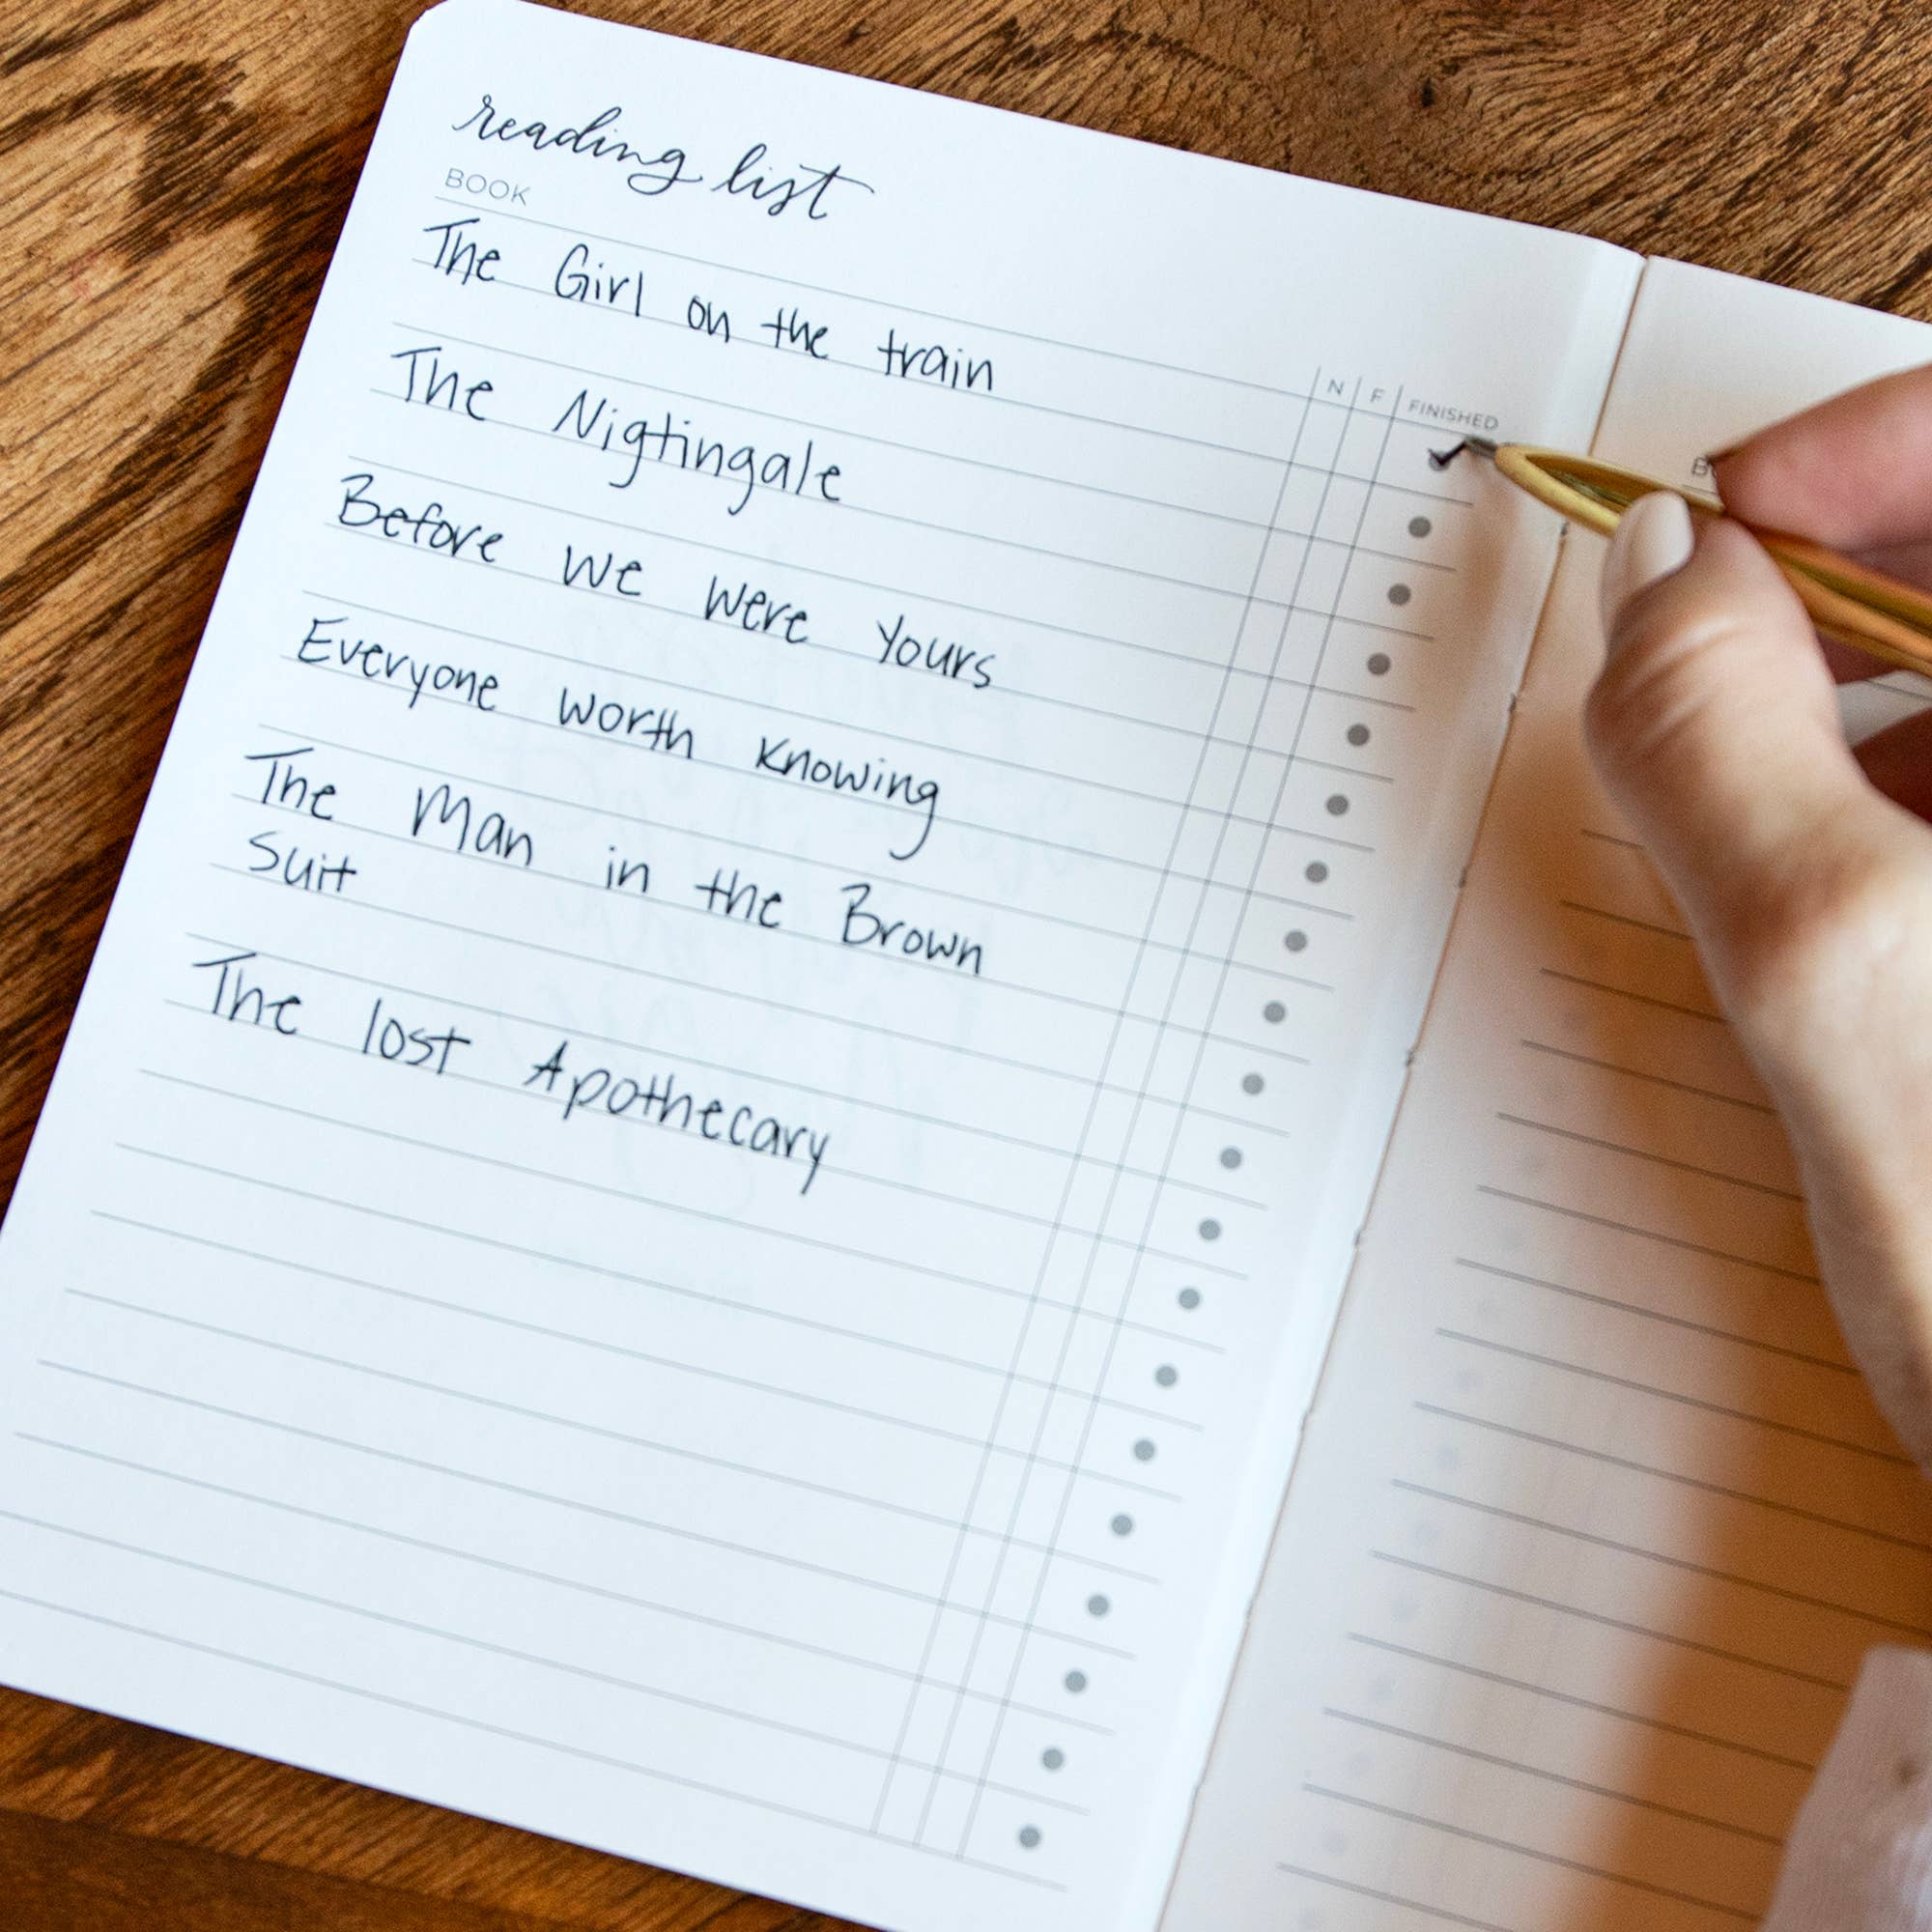 reading list
BOOK N F FINISHED
The Girl on the train
The Nigtingale
Before we were Yours
Everyone worth knowing
The Man in the Brown
Suit
The lost Apothecary